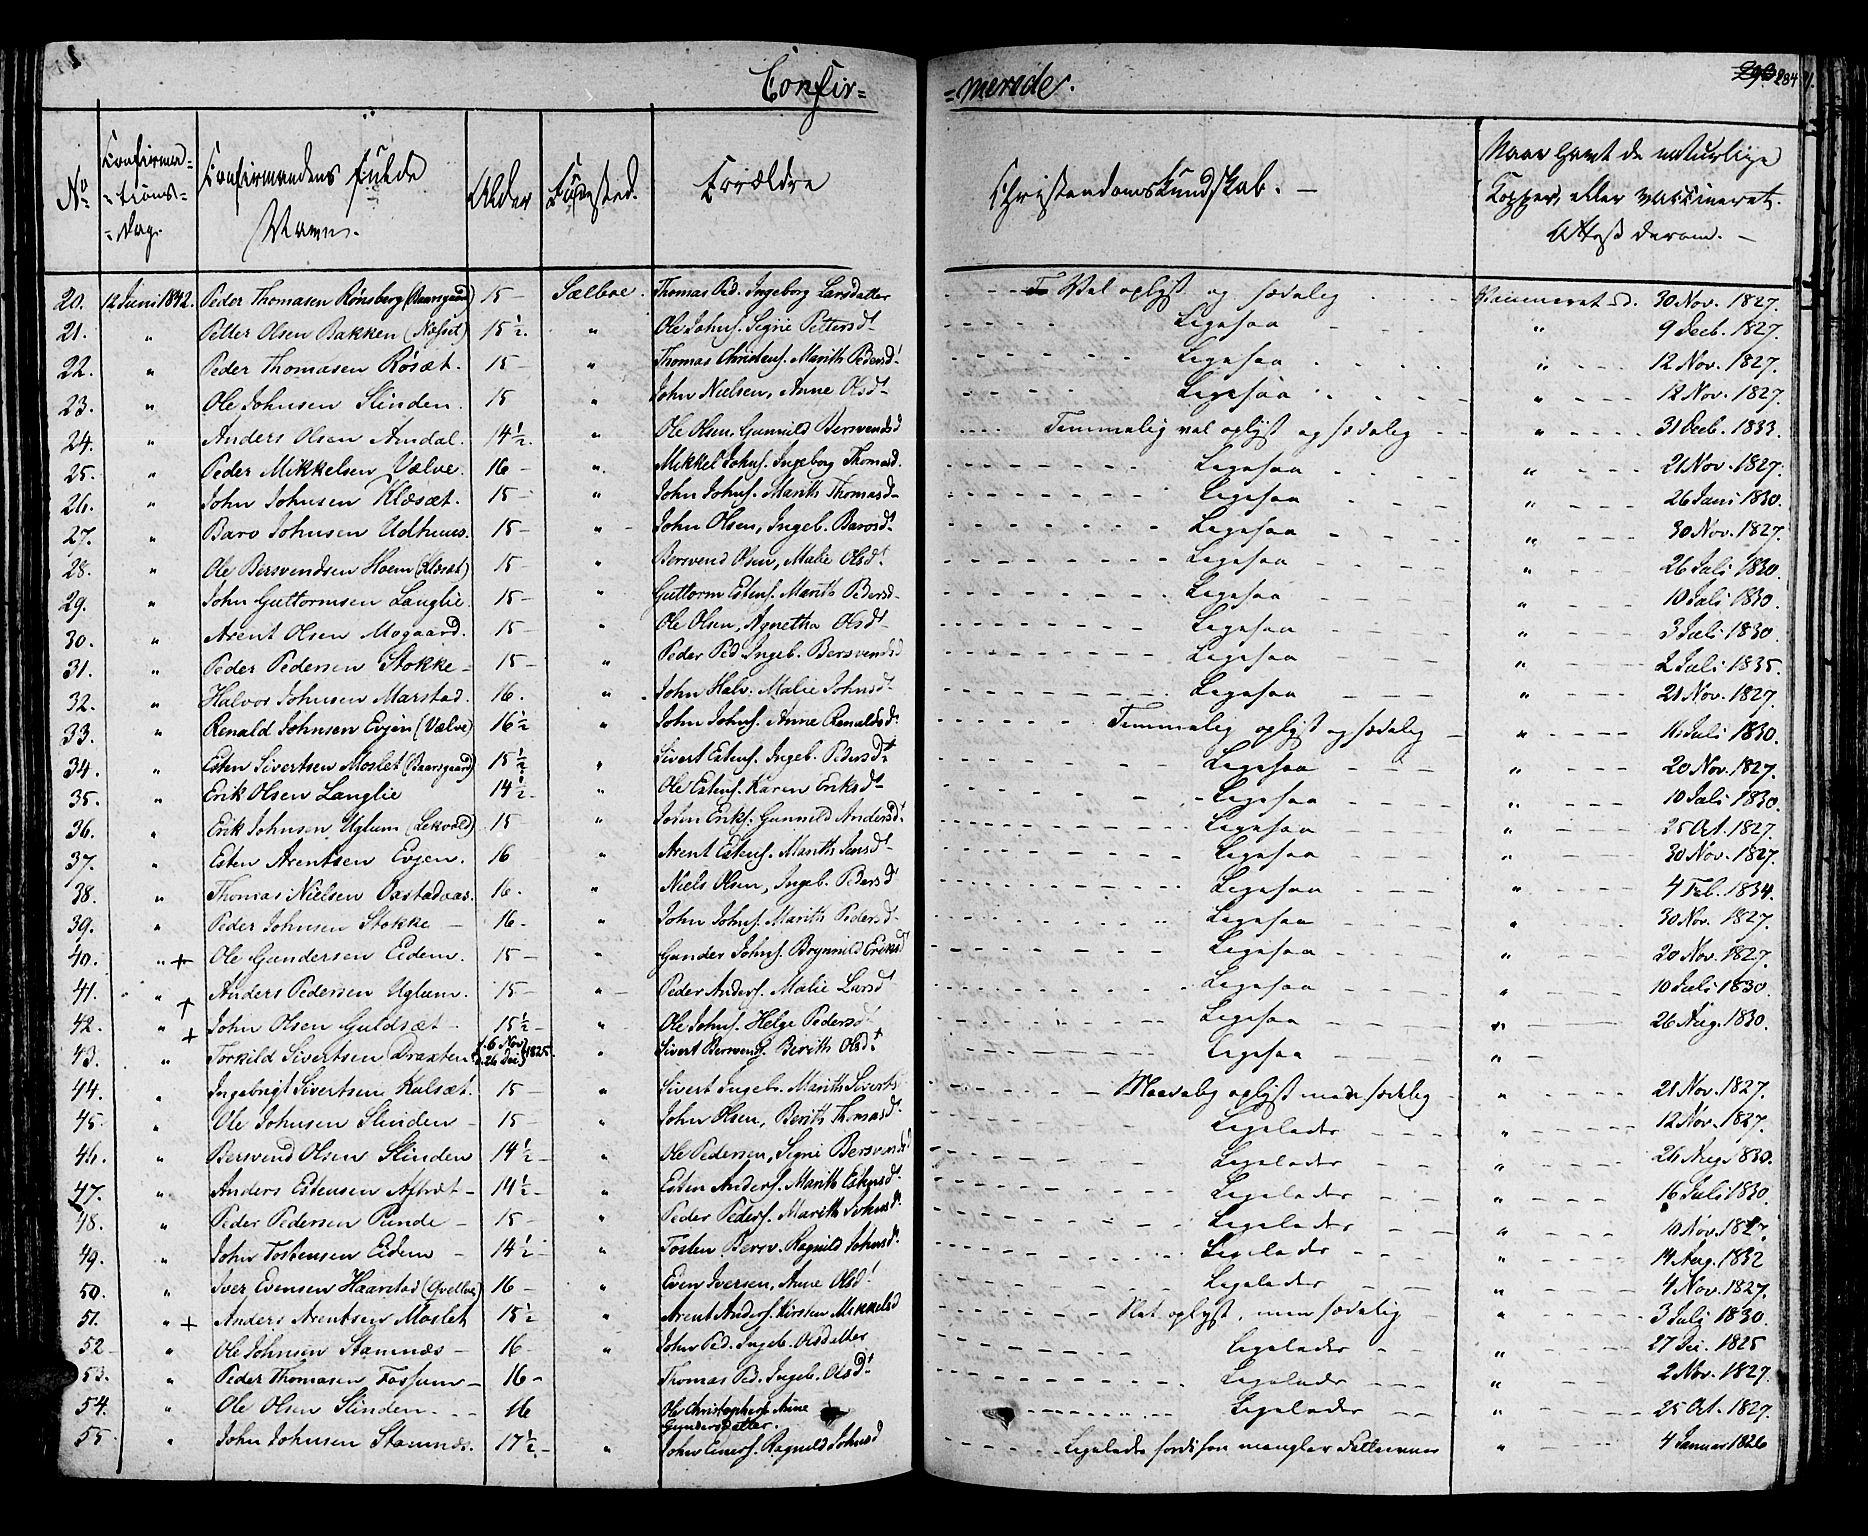 Confir=
=merede.
284
No
Confirma=
=tions=
=dag.
Confirmandens fulde
Navn.
Alder
Fødested.
Forældre
Christendomskundskab. —
Naar havt de naturlige
Kopper, eller vaccineret.
Attest derom. —
20. 12 Juni 1842. Peder Thomasen Rønsberg (Aunsgaard) 15 — Sælboe. Thomas Ped. Ingeborg Larsdatter Vel oplyst og sædelig Vaccineret d. 30 Nov. 1827.
21. " Petter Olsen Bakken (Næsset) 15½ " Ole Johns. Sigrie Pettersdt Ligesaa " 9 Decb. 1827.
22. " Peder Thomasen Røsæt. 15 — " Thomas Christens. Marith Pedersdt Ligesaa " 12 Nov. 1827.
23. " Ole Johnsen Slinden. 15 " John Nielsen, Anne Olsdt Ligesaa " 12 Nov. 1827.
24. " Anders Olsen Amdal. 14½. " Ole Olsen, Gunnild Bersvendsd Temmelig vel oplyst og sædelig " 31 Decb. 1833.
25. " Peder Mikkelsen Vælve. 16 — " Mikkel Johns. Ingeborg Thomasd. Ligesaa " 21 Nov. 1827.
26. " John Johnsen Klæsæt. 15 — " John Johns. Marith Thomasd Ligesaa " 26 Juni 1830.
27. " Baro Johnsen Udhuus. 15 — " John Olsen, Ingeb. Barosdt Ligesaa " 30 Nov. 1827.
28. " Ole Bersvendsen Hoem (Klæsæt) 15 — " Bersvend Olsen, Malie Olsdt Ligesaa " 26 Juli 1830.
29. " John Guttormsen Langlie. 15 — " Guttorm Estens. Marith Pedersd Ligesaa " 10 Juli 1830.
30. " Arent Olsen Mogaard. 15 — " Ole Olsen, Agnetha Olsdt Ligesaa " 3 Juli 1830.
31. " Peder Pedersen Stokke — 15 — " Peder Ped. Ingeb. Bersvendsd Ligesaa " 2 Juli 1835.
32. " Halvor Johnsen Marstad. 16. " John Halv. Malie Johnsdt Ligesaa " 21 Nov. 1827.
33. " Renald Johnsen Evjen (Vælve) 16½ " John Johns. Anne Renaldsdt Temmelig oplyst og sædelig " 16 Juli 1830.
34. " Esten Sivertsen Moslet (Baarsgaard) 15½ " Sivert Estens. Ingeb. Pedersdt Ligesaa " 20 Nov. 1827.
35. " Erik Olsen Langlie 14½ " Ole Estens. Karen Eriksdt Ligesaa " 10 Juli 1830.
36. " Erik Johnsen Uglum (Lekvold) 15 " John Eriks. Gunnild Andersdt Ligesaa " 25 Oct. 1827.
37. " Esten Arentsen Evjen. 16 " Arent Estens. Marith Jensdt Ligesaa " 30 Nov. 1827.
38. " Thomas Nielsen Bastadaas. 16. " Niels Olsen, Ingeb. Pedersd Ligesaa " 4 Feb. 1834.
39. " Peder Johnsen Stokke — 16. " John Johns. Marith Pedersd Ligesaa " 30 Nov. 1827.
40. " + Ole Gundersen Eidem. 15 — " Gunder Johns. Brynnild Eriksd Ligesaa " 20 Nov. 1827.
41. " + Anders Pedersen Uglum. 15 — " Peder Anders. Malie Larsd Ligesaa " 10 Juli 1830.
42. " + John Olsen Guldsæt — 15½ — " Ole Johns. Helge Pedersd Ligesaa " 26 Aug. 1830.
43. " Torkild Sivertsen Draxten f. 6 Nov d. 26 Dec 1825. " Sivert Bersvends. Berith Olsdt Ligesaa "
44. " Ingebrigt Sivertsen Kulsæt. 15 — " Sivert Ingebr. Marith Siverts Maadelig oplyst men sædelig " 21 Nov. 1827.
45. " Ole Johnsen Slinden — 15 — " John Olsen, Berith Thomasdt Ligeledes " 12 Nov. 1827.
46. " Bersvend Olsen Slinden 14½ — " Ole Pedersen, Sigrie Bersvendsd Ligeledes " 26 Aug. 1830.
47. " Anders Estensen Aftræt — 14½ — " Esten Anders. Marith Estensdt Ligeledes " 16 Juli 1830.
48. " Peder Pedersen Punde — 15 — " Peder Peders. Marith Johnsdt Ligeledes " 10 Nov. 1827.
49. " John Tostensen Eidem — 14½ — " Tosten Bersv. Ragnild Johnsdt Ligeledes " 14 Aug. 1832
50. " Iver Evensen Haarstad (Qvelloe) 16 — " Even Iversen, Anne Olsdt Ligeledes " 4 Nov. 1827.
51. " + Anders Arentsen Moslet 15½ " Arent Anders. Kirsten Mikkelsd Slet oplyst, men sædelig " 3 Juli 1830.
52 " Ole Johnsen Stamnæs — 16 " John Ped. Ingeb. Olsdatter Ligeledes " 27 Dec. 1825
53. " Peder Thomasen Fossum — 16 — Thomas Ped. Ingeb. Olsdt Ligeledes " 2 Nov. 1827.
54. " Ole Olsen Slinden. 16 Ole Christophers. Anne
Gundersdatter. Ligeledes " 25 Oct. 1827.
55 " John Johnsen Stamnæs. 17½ — " John Einers. Ragnild Johnsd Ligeledes fordi han mangler Fatteevner " 4 Januar 1826